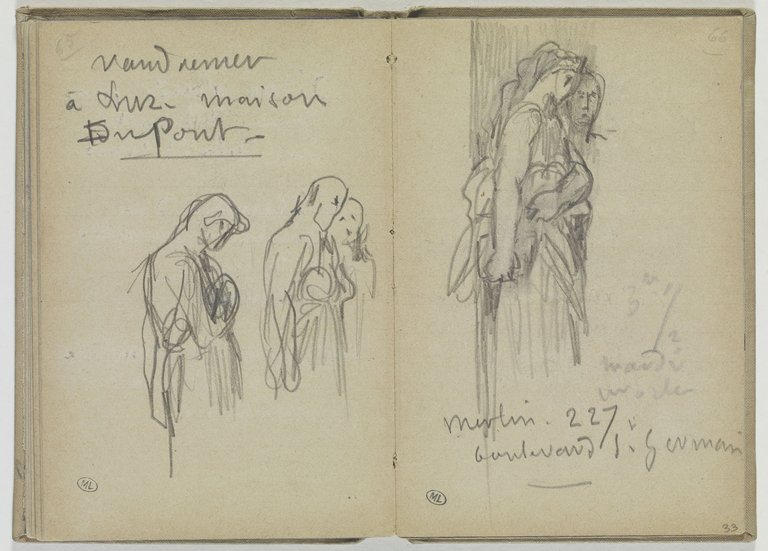 65
Vaudremer
à Luz. maison
DuPont -
ML
66
3
1/2
mardi
Merlin. 227
boulevard St. Germain
ML
33